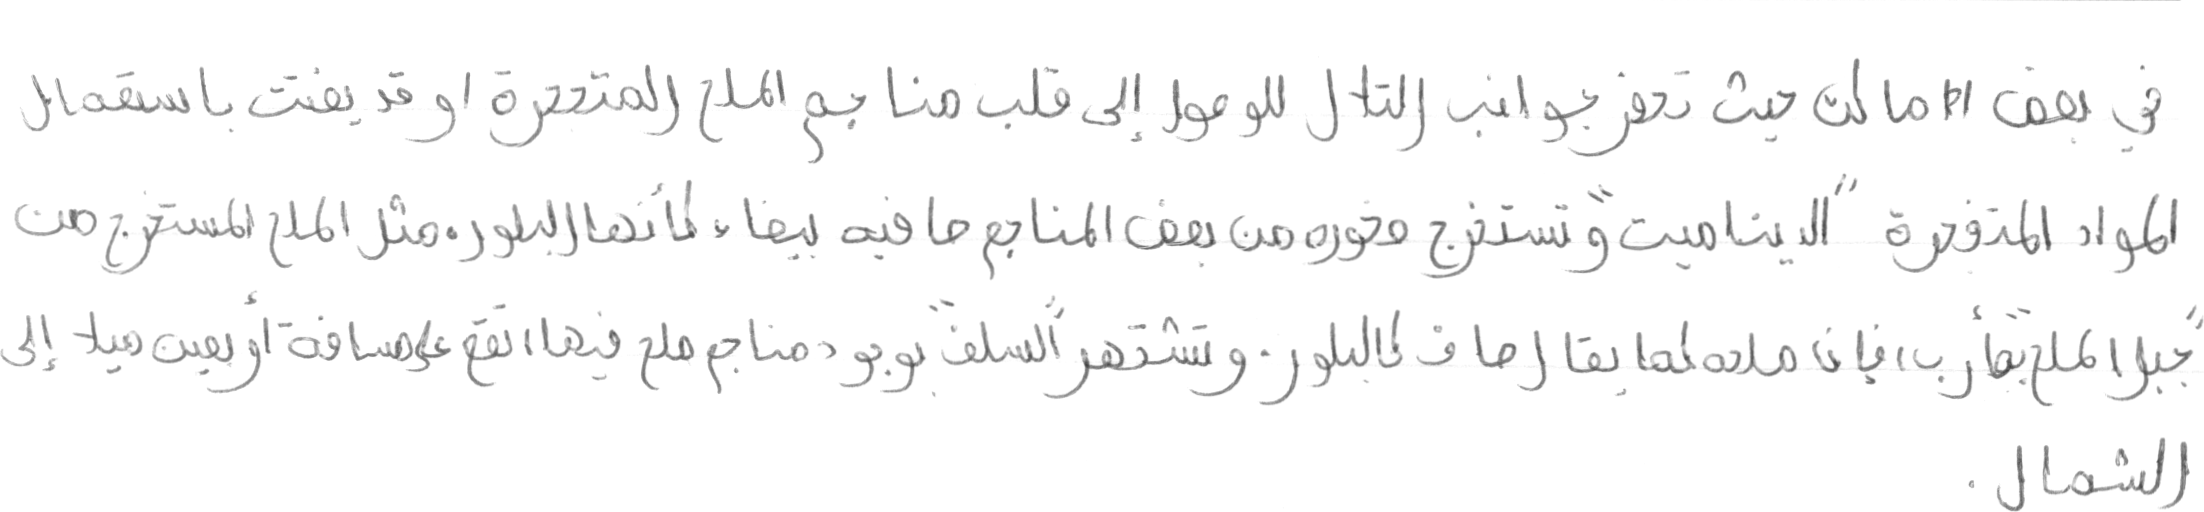 في بعض الاماكن حيث تحفر جوانب التلال للوصول إلى قلب مناجم الملح المتحجرة او قد يفتت باستعمال
المواد المتفجرة "الديناميت" وتستخرج صخوره من بعض المناجم صافيه بيضاء كأنها البلور، مثل الملح المستخرج من
"جبل الملح" بمأرب، فإن ملحه كما يقال صاف كالبلور. وتشتهر "السلف" بوجود مناجم ملح فيها، تقع على مسافة أربعين ميلا إلى
الشمال.